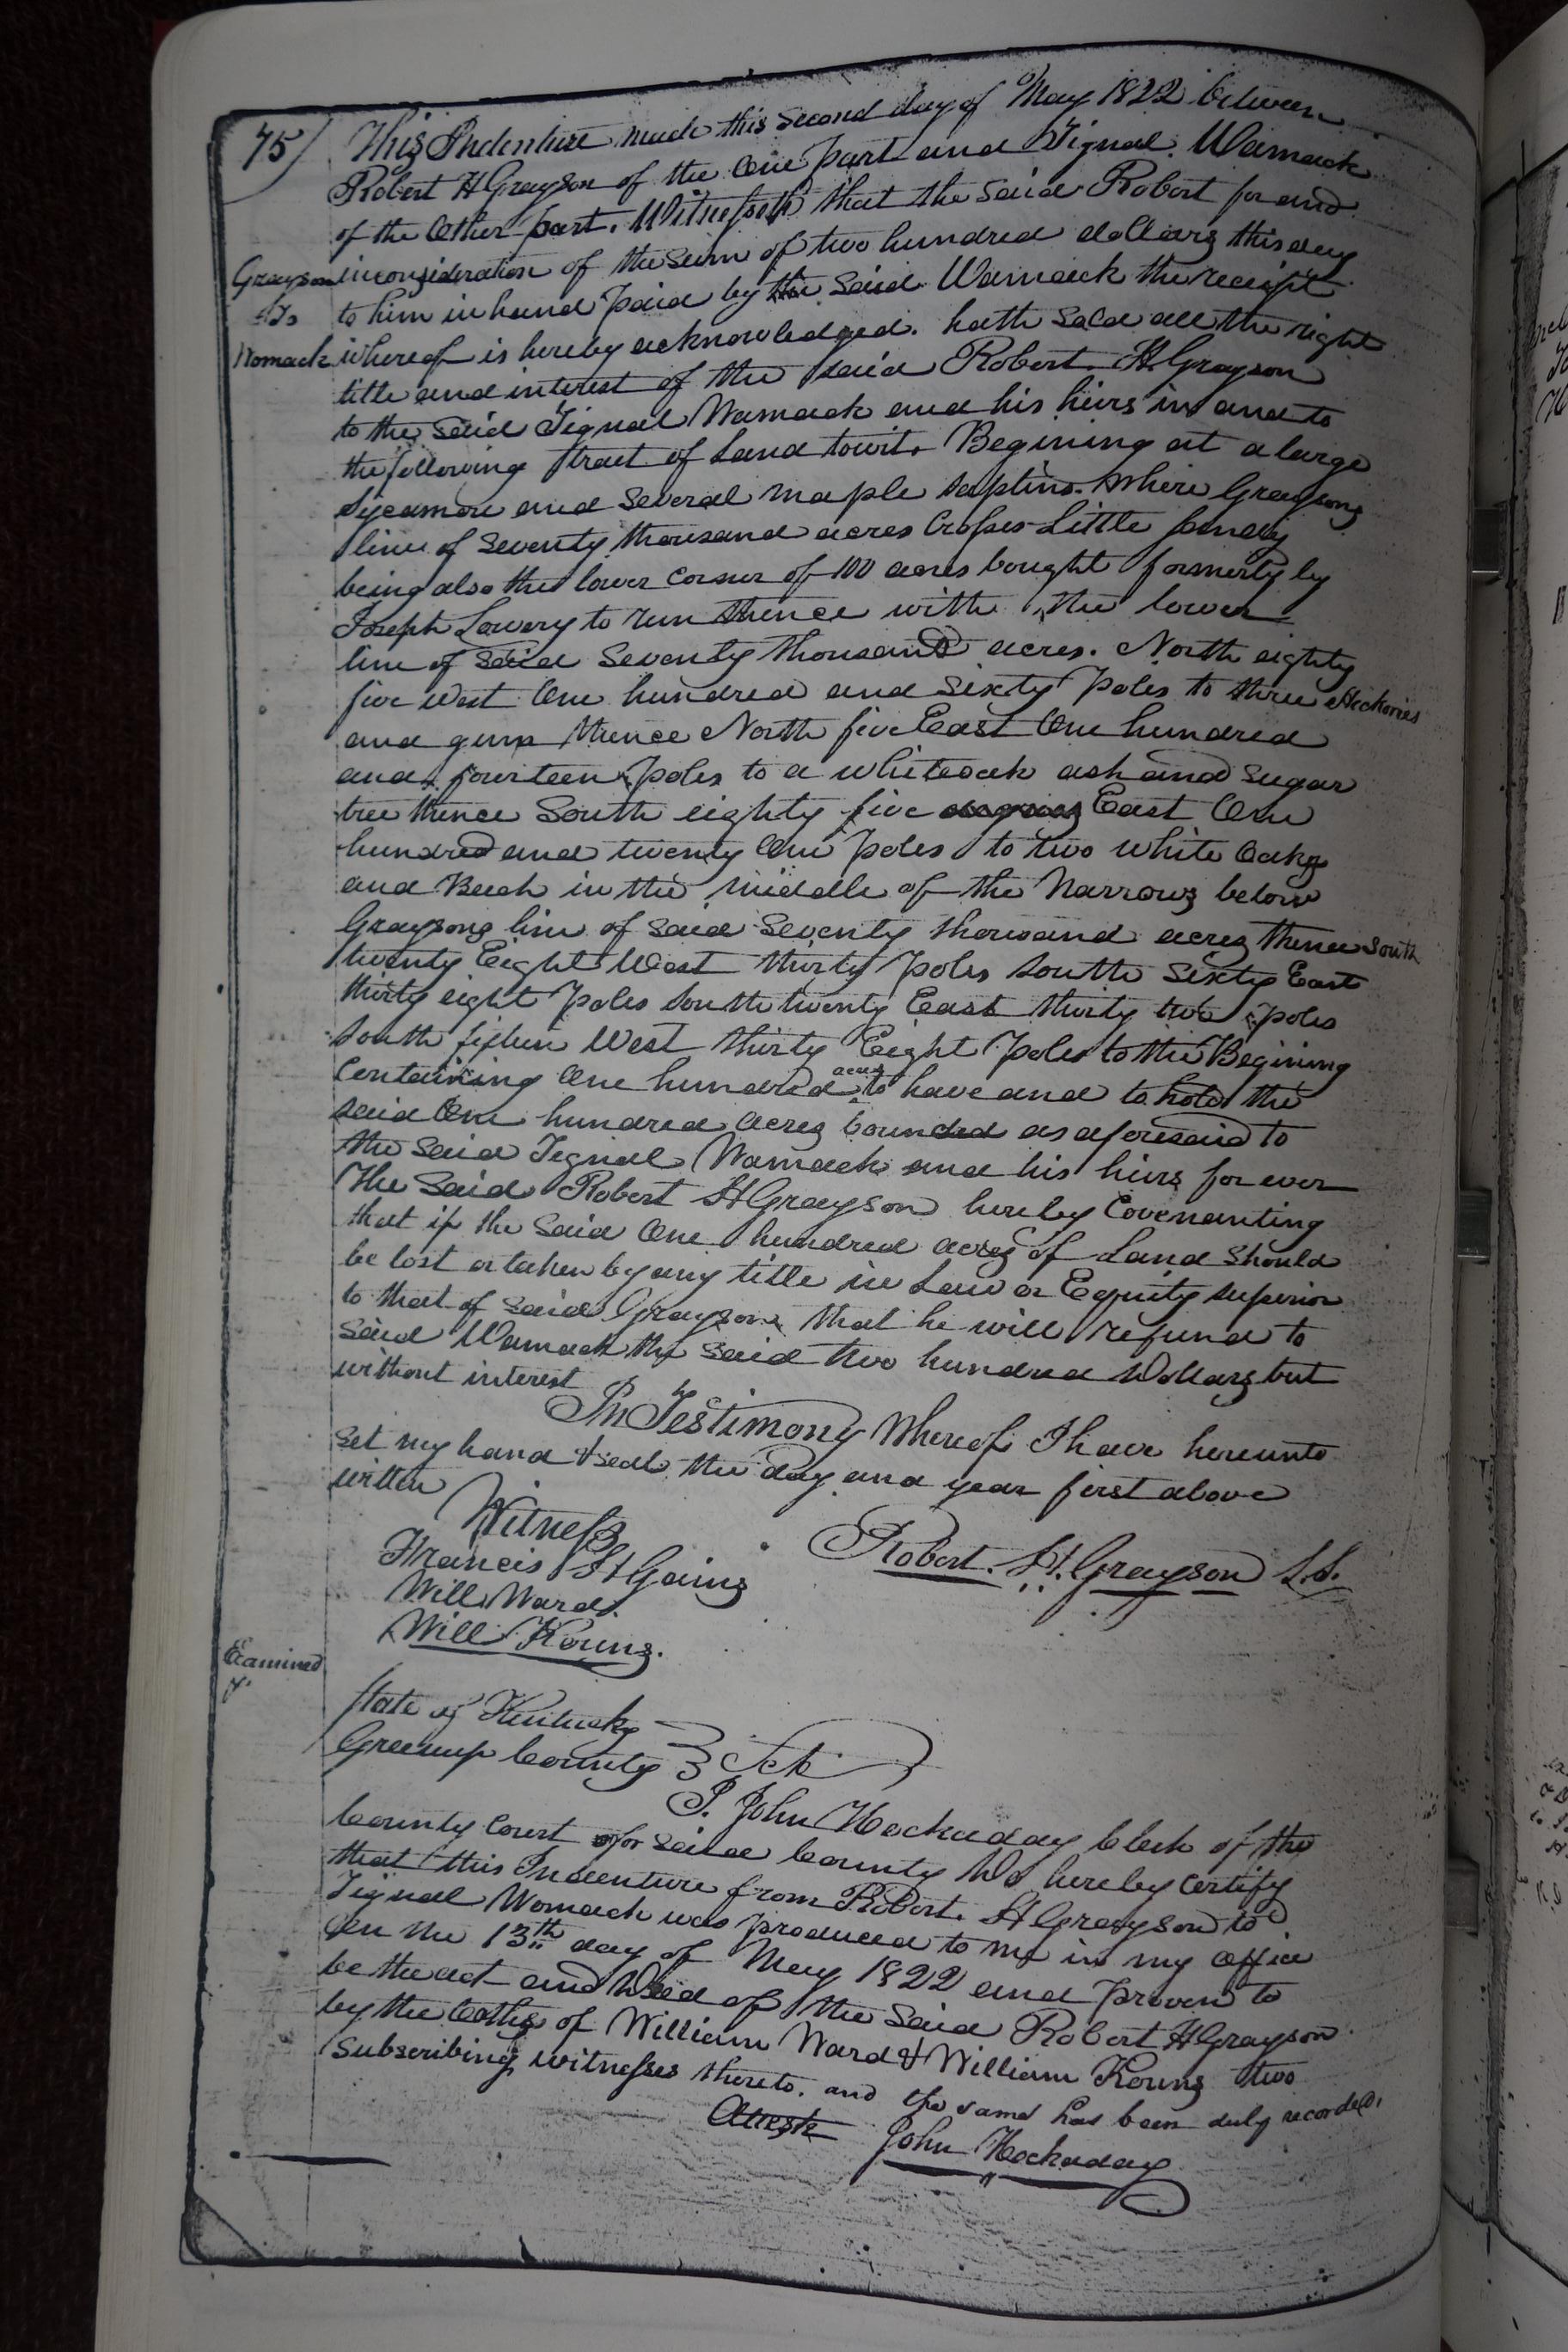 75/
This Indenture made this second day of May 1822 between
Robert H Grayson of the One part and Tignal Wamack
of the Other part. Witnesseth that the said Robert for and
Grayson
inconsideration of the sum of two hundred dollars this day
To
to him in hand paid by the said Wamack the receipt
Womack
whereof is hereby acknowledged. hath sold all the right
title and interest of the said Robert. H. Grayson
to the said Tignal Wamack and his heirs in and to
the following tract of Land towit. Begining at a large
Sycamore and several maple saplins. Where Graysons
line of seventy thousand acres Crosses Little Sandy
being also the lower corner of 100 acres bought formerly by
Joseph Lowery to run thence with the lower
line of said Seventy thousand acres. North eighty
five West One hundred and sixty poles to three Hickories
and gum thence North five East One hundred
and fourteen poles to a whiteoak ash and sugar
tree thence South eighty five East One
hundred and twenty One poles to two white Oaks
and Beech in the middle of the Narrows below
Graysons line of said Seventy thousand acres thence South
twenty Eight West thirty poles South Sixty East
thirty eight poles South twenty East thirty two poles
South fifteen West thirty Eight Poles to the Begining
Containing One hundred acres to have and to hold the
said One hundred acres bounded as aforesaid to
the said Tignal Wamack and his heirs for ever
The said Robert H Grayson hereby Covenanting
that if the said One hundred acres of Land should
be lost or taken by any title in Law or Equity superior
to that of said Grayson that he will refund to
said Wamack the said two hundred Dollars but
without interest
In Testimony Whereof I have hereunto
set my hand & seal the day and year first above
written
Witness
Francis H Gains
Robert. H. Grayson L.S.
Will Ward.
Will Kouns.
Examined
State of Kentucky
Greenup County } Sct
I. John Hockaday Clerk of the
County Court for said County Do hereby certify
that this Indenture from Robert. H Grayson to
Tignal Womack was produced to me in my office
On the 13th day of May 1822 and proven to
be the act and Deed of the said Robert H Grayson
by the Oaths of William Ward & William Kouns two
subscribing witnesses thereto. and the same has been duly recorded.
Attest
John Hockaday